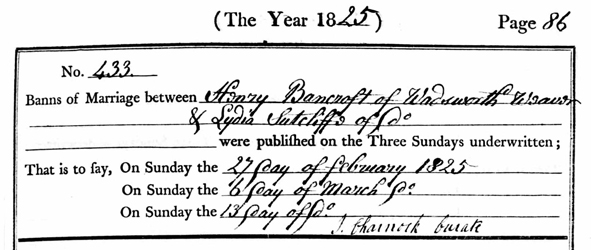 (The Year 1825) Page 86
No. 433.
Banns of Marriage between Henry Bancroft of Wadsworth Weaver
& Lydia Sutcliffe of Do
were published on the Three Sundays underwritten;
That is to say, On Sunday the 27 Day of February 1825
On Sunday the 6 Day of March Do
On Sunday the 13 Day of Do
J. Charnock Curate